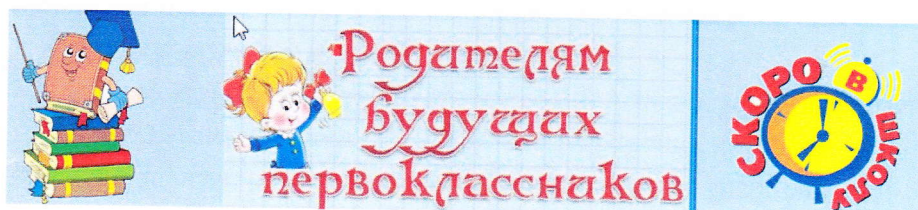 Родителям
будущих
первоклассников
СКОРО
В
ШКОЛУ